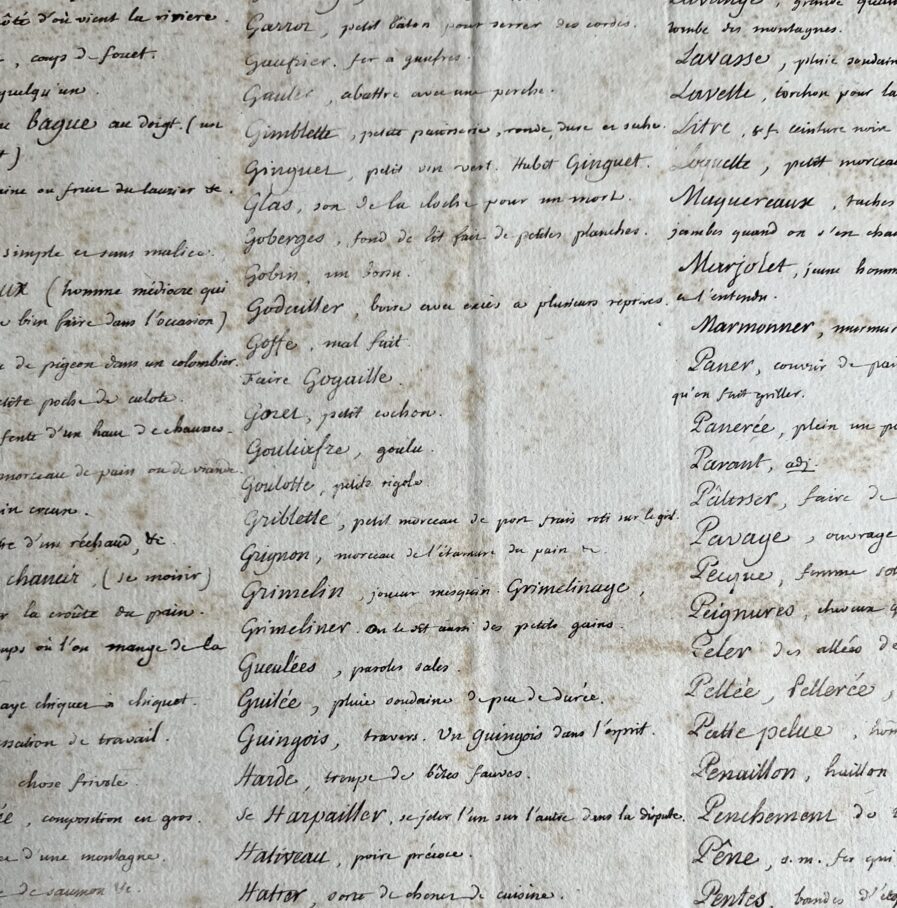 côté d'où vient la riviere
, coups de fouet.
quelqu'un.
bague au doigt. (un
ou fruit du laurier &c.
simple et sans malice.
(homme médiocre qui
bien faire dans l'occasion)
de pigeon dans un colombier.
poche de culote.
fente d'un haut de chausses.
morceau de pain ou de viande.
creux.
d'un réchaud, &c.
chancir, (se moisir)
la croûte du pain.
où l'on mange de la
chiquet à chiquet.
de travail.
chose frivole.
, composition en gros.
d'une montagne.
de saumon &c.
Garrot, petit bâton pour serrer des cordes.
Gaufrier. fer a gaufres.
Gauler, abattre avec une perche.
Gimblette, petite patisserie, ronde, dure et seche.
Ginguet, petit vin vert. Habit Ginguet.
Glas, son de la cloche pour un mort.
Goberges, fond de lit fait de petites planches.
Gobin, un bossu.
Godailler, boire avec excès a plusieurs reprises.
Goffe, mal fait.
Faire Gogaille.
Goret, petit cochon.
Gouliafre, goulu.
Goulotte, petite rigole
Griblette, petit morceau de porc frais roti sur le gril.
Grignon, morceau de l'entamure du pain &c.
Grimelin, joueur mesquin. Grimelinage,
Grimeliner. On le dit aussi des petits gains.
Gueulées, paroles sales.
Guilée, pluie soudaine de peu de durée.
Guingois, travers. Un guingois dans l'esprit.
Harde, troupe de bêtes fauves.
se Harpailler, se jeter l'un sur l'autre dans la dispute.
Hativeau, poire précoce.
Hatier, sorte de chenet de cuisine.
Lavange, grande quan
tombe des montagnes.
Lavasse, pluie soudain
Lavette, torchon pour la
Litre, s.f. ceinture noire
Loquette, petit morceau
Maquereaux, taches
jambes quand on s'est chau
Marjolet, jeune homm
et l'entendu.
Marmonner, murmur
Paner, couvrir de pai
qu'on fait griller.
Panerée, plein un pa
Parant, adj.
Pâtisser, faire de
Pavage, ouvrage
Pecque, femme sot
Peignures, cheveux q
Peler des allées de
Pellée, Pellerée,
Patte pelue, hom
Penaillon, haillon
Penchement de
Pêne, s.m. fer qui
Pentes, bandes d'éto